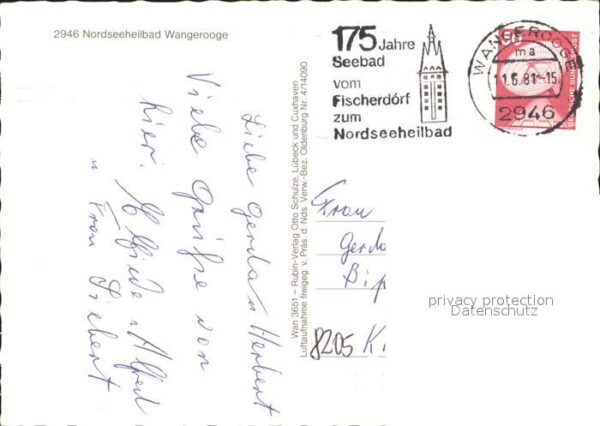 2946 Nordseeheilbad Wangerooge
Liebe Gerda u Herbert
Viele Grüße von
hier. Elfriede u. Alfred
u Frau Siebert.
Wan 3651 – Rubin-Verlag Otto Schulze, Lübeck und Cuxhaven
Luftaufnahme freigeg. v. Präs. d. Nds. Verw.-Bez. Oldenburg Nr. 4/14090
175 Jahre
Seebad
vom
Fischerdorf
zum
Nordseeheilbad
WANGEROOGE
ma
11.6.81-15
2946
DEUTSCHE BUNDESPOST
Frau
Gerda
8205 K
privacy protection
Datenschutz